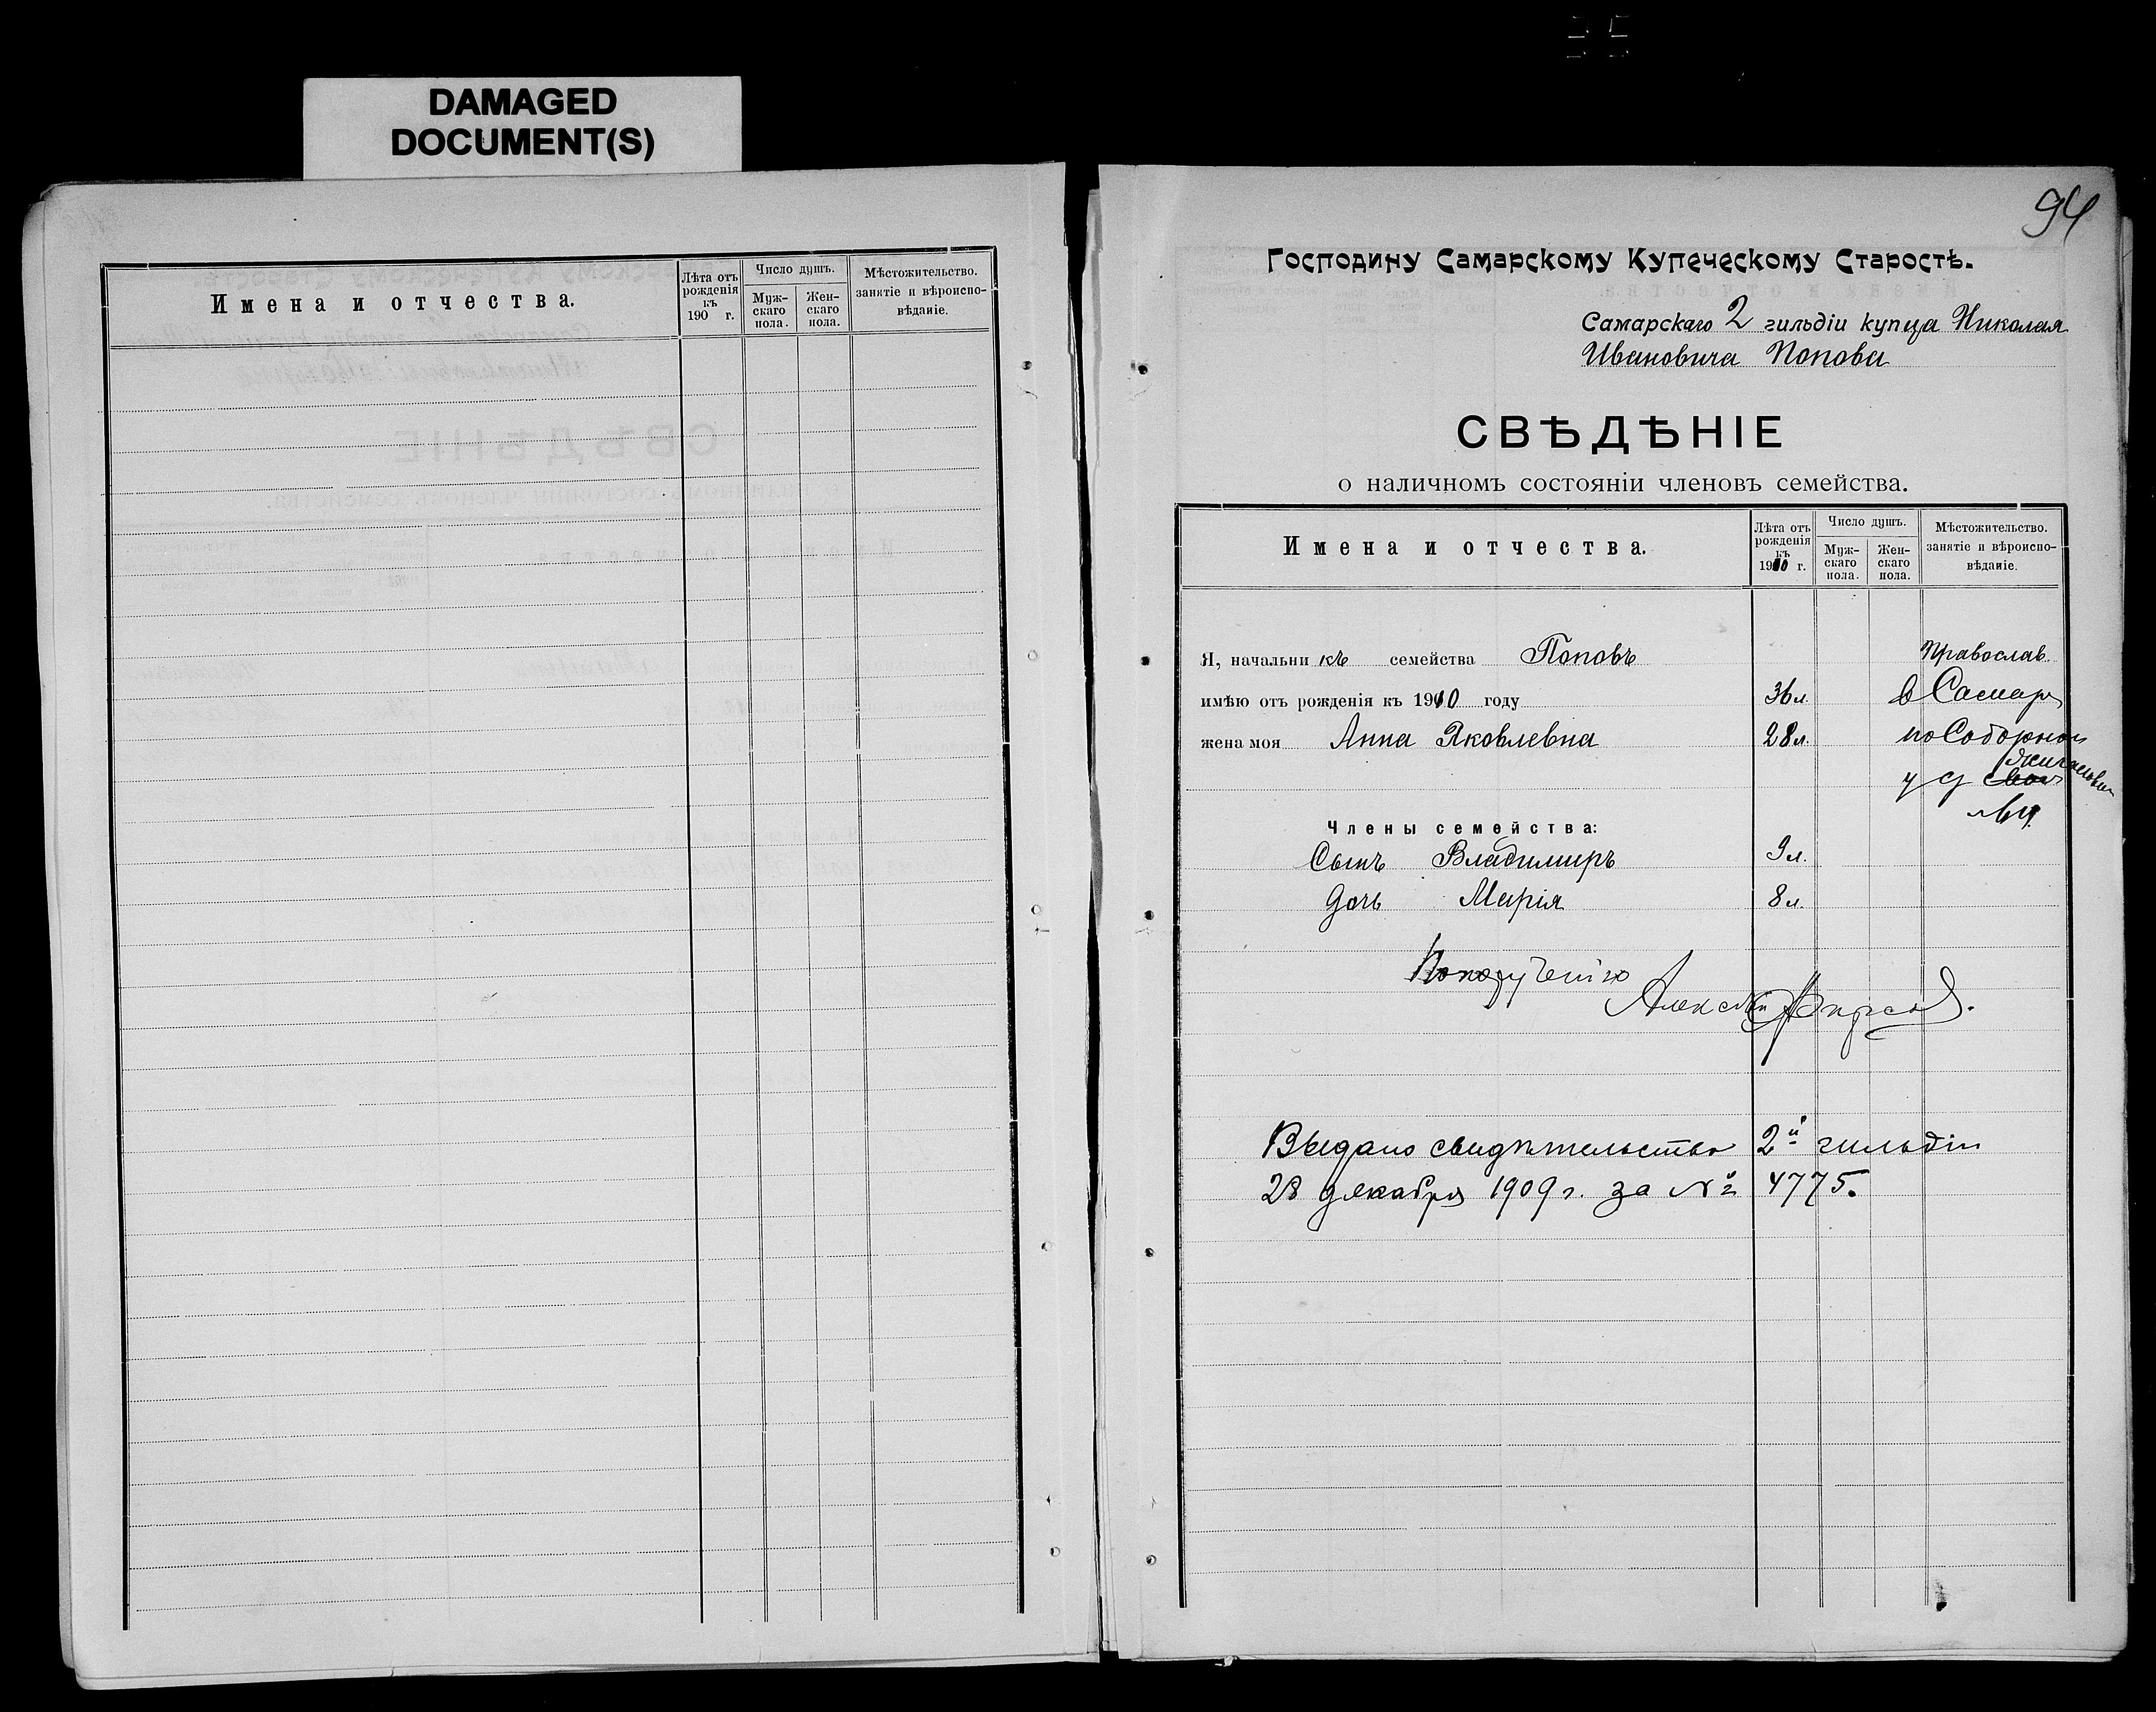 DAMAGED
DOCUMENT(S)
Имена и отчества.
Лѣта отъ рожденія къ 190 г.
Число душъ.
Муж-скаго пола.
Жен-скаго пола.
Мѣстожительство.
занятіе и вѣроиспо-
вѣданіе.
94
Господину Самарскому Купеческому Старостѣ.
Самарскаго 2 гильдіи купца Николая
Ивановича Попова
СВѢДѢНІЕ
о наличномъ состояніи членовъ семейства.
Имена и отчества.
Лѣта отъ рожденія къ 1910 г.
Число душъ.
Муж-скаго пола.
Жен-скаго пола.
Мѣстожительство.
занятіе и вѣроиспо-
вѣданіе.
Я, начальникъ семейства Поповъ Православ.
имѣю отъ рожденія къ 1910 году 36 л. в Самарѣ
жена моя Анна Яковлевна 28 л. по Соборной
Члены семейства:
Сынъ Владимиръ 9 л.
Дочь Марія 8 л.
По порученію
Алексѣй
Выдано свидѣтельство 2й гильдіи
28 декабря 1909 г. за № 4775.